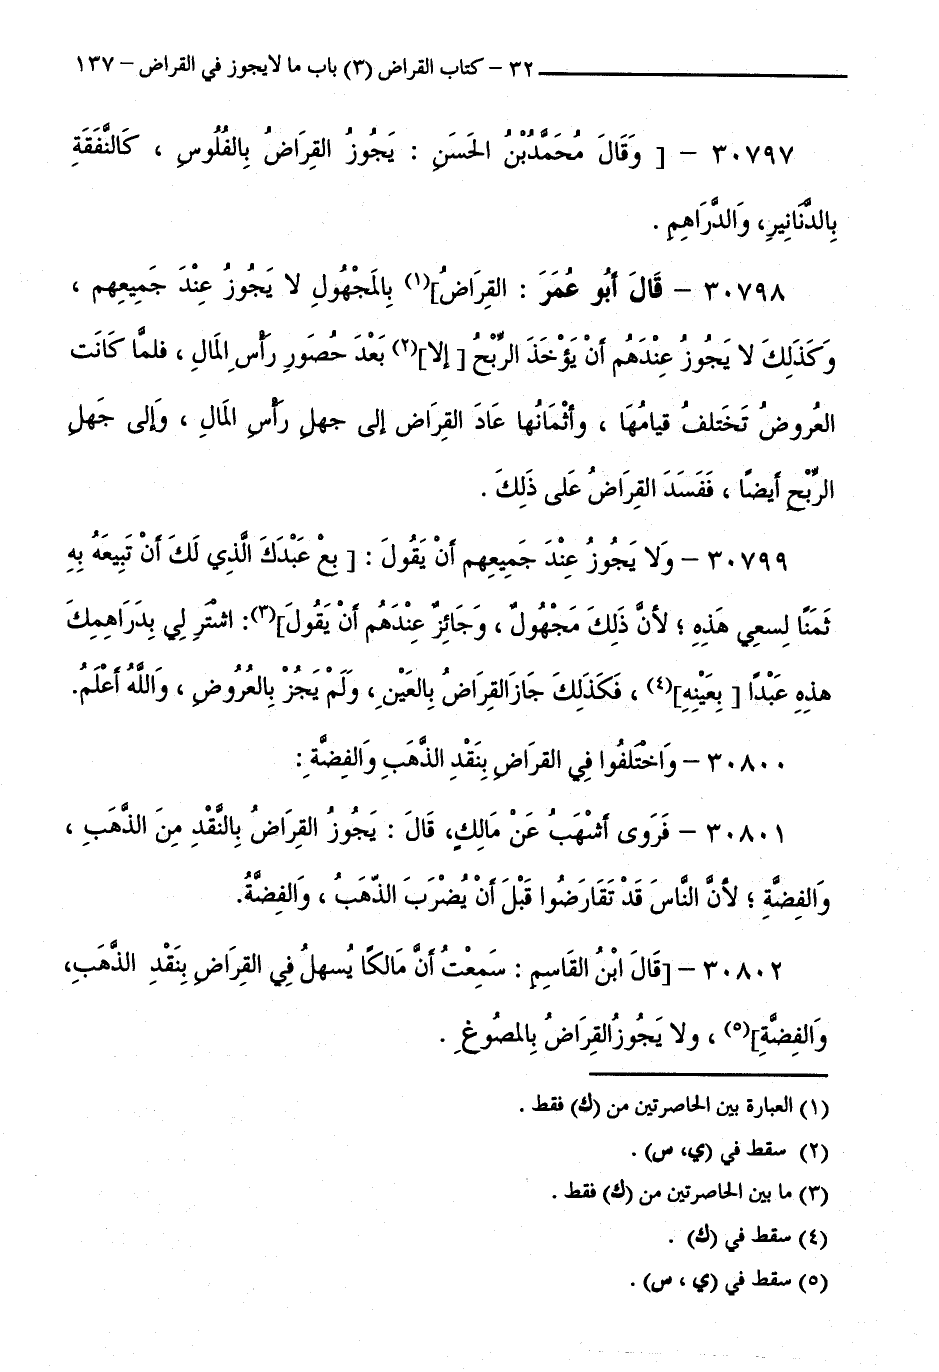 ٣٢ – كتاب القراض (٣) باب ما لايجوز في القراض – ١٣٧
٣٠٧٩٧ – [ وَقَالَ مُحَمَّدُبْنُ الحَسَنِ : يَجُوزُ القِرَاضُ بِالفُلُوسِ ، كَالنَّفَقَةِ
بِالدَّنَانِيرِ، وَالدَّرَاهِمِ .
٣٠٧٩٨ – قَالَ أَبُو عُمَرَ : القِرَاضُ](١) بِالمَجْهُولِ لا يَجُوزُ عِنْدَ جَمِيعِهم ،
وَكَذَلِكَ لا يَجُوزُ عِنْدَهُم أَنْ يَؤْخَذَ الرِّبْحُ [ إلا](٢) بَعْدَ حُضَورِ رَأْسِ المَالِ ، فلمَّا كَانَت
العُروضُ تَخَتَلفُ قيامُهَا ، وأثْمَانُها عَادَ القِرَاض إلى جهلِ رَأْسِ المَالِ ، وَإلى جَهلِ
الرِّبْحِ أيضًا ، فَفَسَدَ القِرَاضُ عَلى ذَلِكَ .
٣٠٧٩٩ – وَلا يَجُوزُ عِنْدَ جَمِيعِهم أَنْ يَقُولَ : [ بِعْ عَبْدَكَ الَّذِي لَكَ أَنْ تَبِيعَهُ بِهِ
ثَمَنًا لِسعِي هَذِهِ ؛ لأَنَّ ذَلِكَ مَجْهُولٌ ، وَجَائِزٌ عِنْدَهُم أَنْ يَقُولَ](٣): اشْتَرِ لِي بِدَرَاهِمِكَ
هذِهِ عَبْدًا [ بِعَيْنِهِ](٤) ، فَكَذَلِكَ جَازَالقِرَاضُ بِالعَيْنِ ، وَلَمْ يَجُزْ بِالعُرُوضِ ، وَاللَّهُ أَعْلَمُ.
٣٠٨٠٠ – وَاخْتَلَفُوا فِي القرَاضِ بِنَقْدِ الذَّهَبِ وَالفِضَّةِ :
٣٠٨٠١ – فَرَوى أَشْهَبُ عَنْ مَالِكٍ، قَالَ : يَجُوزُ القِرَاضُ بِالنَّقْدِ مِنَ الذَّهَبِ ،
وَالفِضَّةِ ؛ لأنَّ النَّاسَ قَدْ تَقَارَضُوا قَبْلَ أَنْ يُضْرَبَ الذَّهَبُ ، وَالفِضَّةُ.
٣٠٨٠٢ – [قَالَ ابْنُ القَاسِمِ : سَمِعْتُ أَنَّ مَالكًا يُسهلُ فِي القِرَاضِ بِنَقْدِ الذَّهَبِ،
وَالفِضَّةِ](٥) ، ولا يَجُوزُالقِرَاضُ بِالمصُوغِ .
(١) العبارة بين الحاصرتين من (ك) فقط .
(٢) سقط في (ي، س) .
(٣) ما بين الحاصرتين من (ك) فقط .
(٤) سقط في (ك) .
(٥) سقط في (ي ، س) .